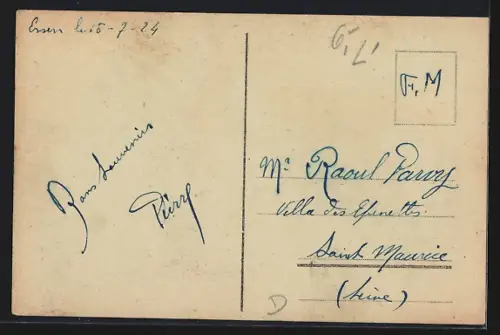 Essen le 15-7-24
Bons Souvenirs
Pierre
F.M
Mr Raoul Parvy
Villa des Epinettes
Saint Maurice
(Seine)
D